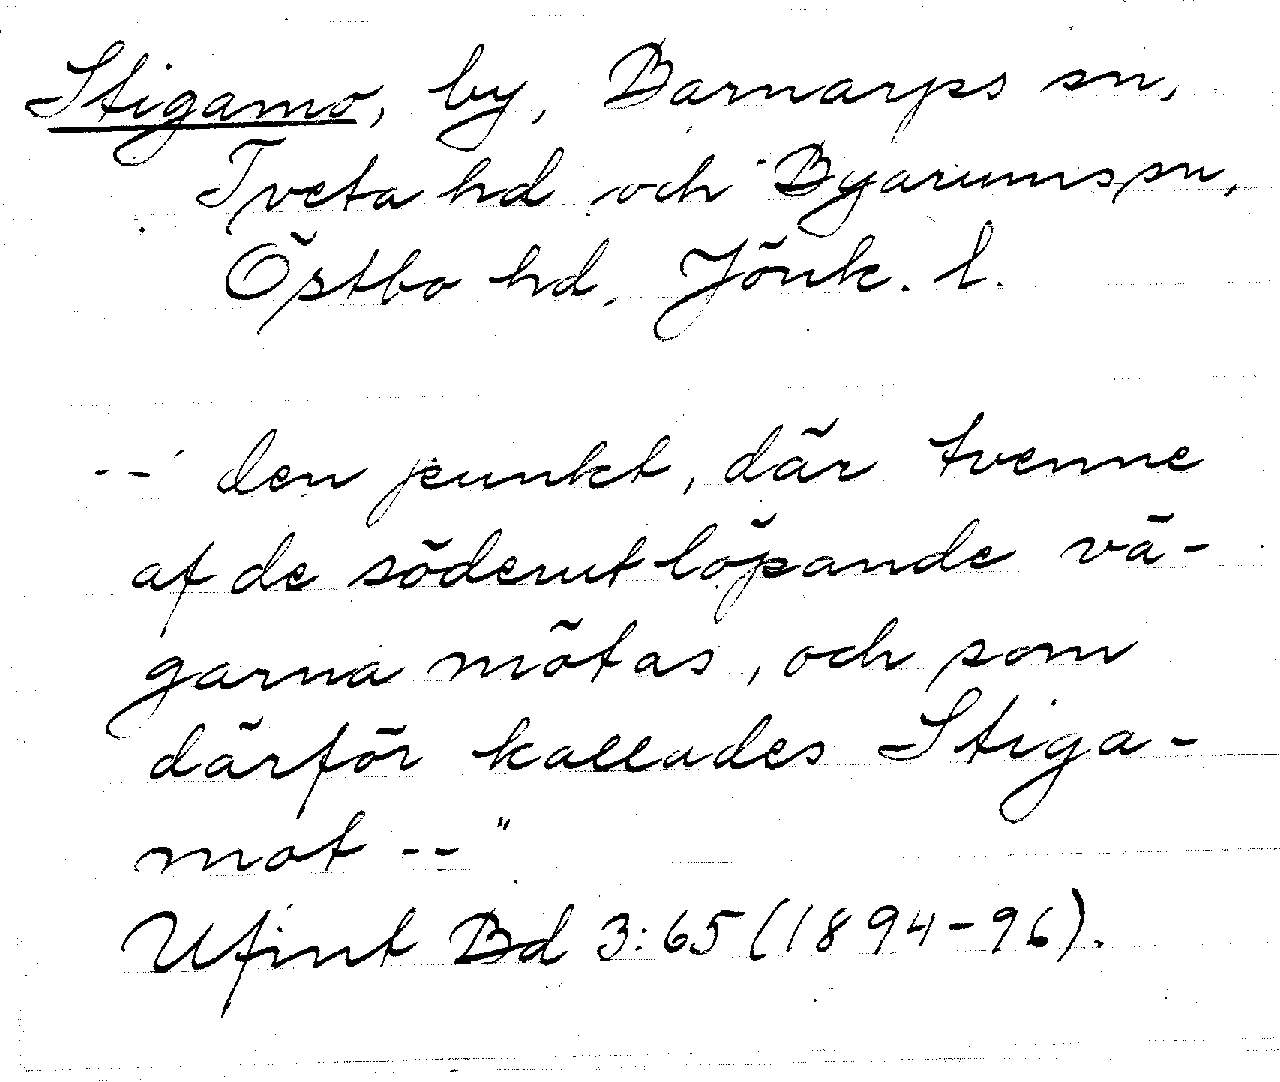 Stigamo, by, Barnarps sn,
Tveta hd och Byarums sn,
Östbo hd, Jönk. l.
-- den punkt, där tvenne
af de söderut löpande vä-
garna mötas, och som
därför kallades Stiga-
mot --"
Ufint Bd 3:65 (1894-96).